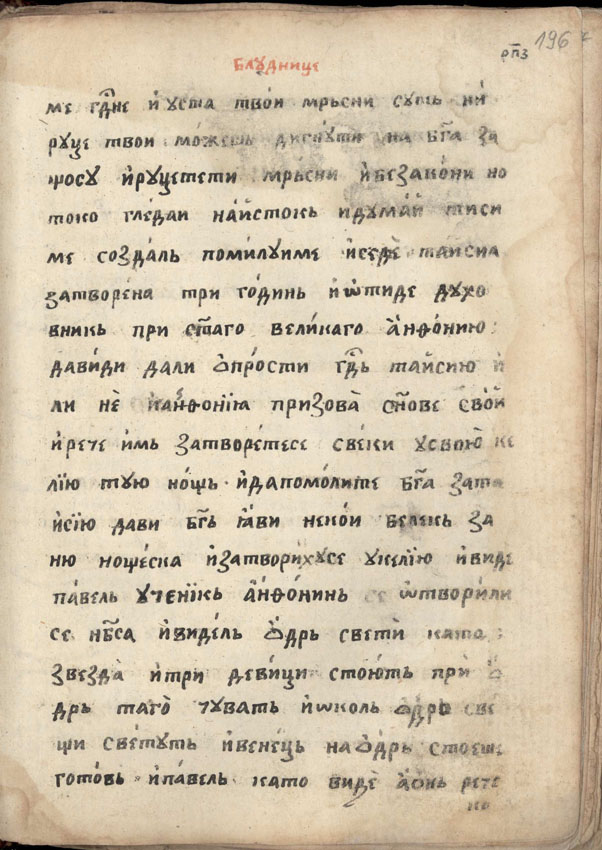 рп҃з 196
блуднице
ме гдⷭ҇не и҆ уста твои мрьсни суть ни
руце твои можешь дигнути на бг҃а за
щосу и҆руцетети мрьсни и҆безакони но
токо гледаи на и҆стокь и҆думаи тиси
ме создаль помилуиме и҆седѐ таи҆сиа
затворена три годинь и҆ѡтиде духо
вникь при ст҃аго великаго а҆нѳонию
давиди дали ѻ҆прости гдⷭ҇ь таи҆сию и҆
ли нѐ и҆ а҆нѳонїꙗ призова̀ сн҃ове свои
и҆рече и҆мь затворетесе свеки усвою ке
лїю тую нощь и҆дапомолите бг҃а зата
и҆сїю дави бг҃ь ꙗ҆ви некои белекь за
ню нощеска и҆затворихусе укелїю и҆виде
павель ученїкь а҆нѳонинь се ѡ҆творили
се нб҃са и҆видель ѻ҆дрь свети като
звезда̀ и҆три девици стоють при ѻ҆
дрь таго̀ чувать и҆ѡколь ѻ҆дрь све
щи светуть и҆венець на ѻ҆дрь стоеше
готовь и҆павель като видѐ а҆ѻнь рече
но